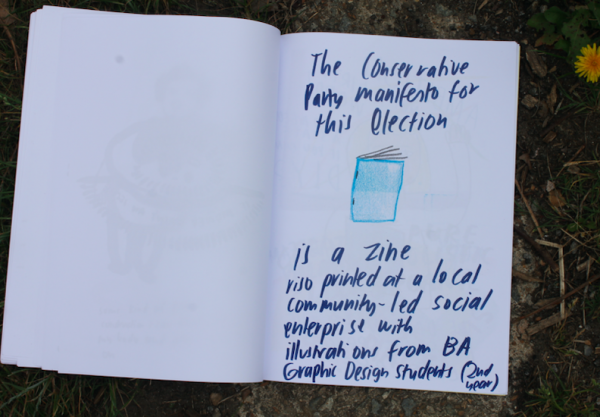 The Conservative
Party manifesto for
this Election
is a zine
riso printed at a local
community-led social
enterprise with
illustrations from BA
Graphic Design students (2nd
year)